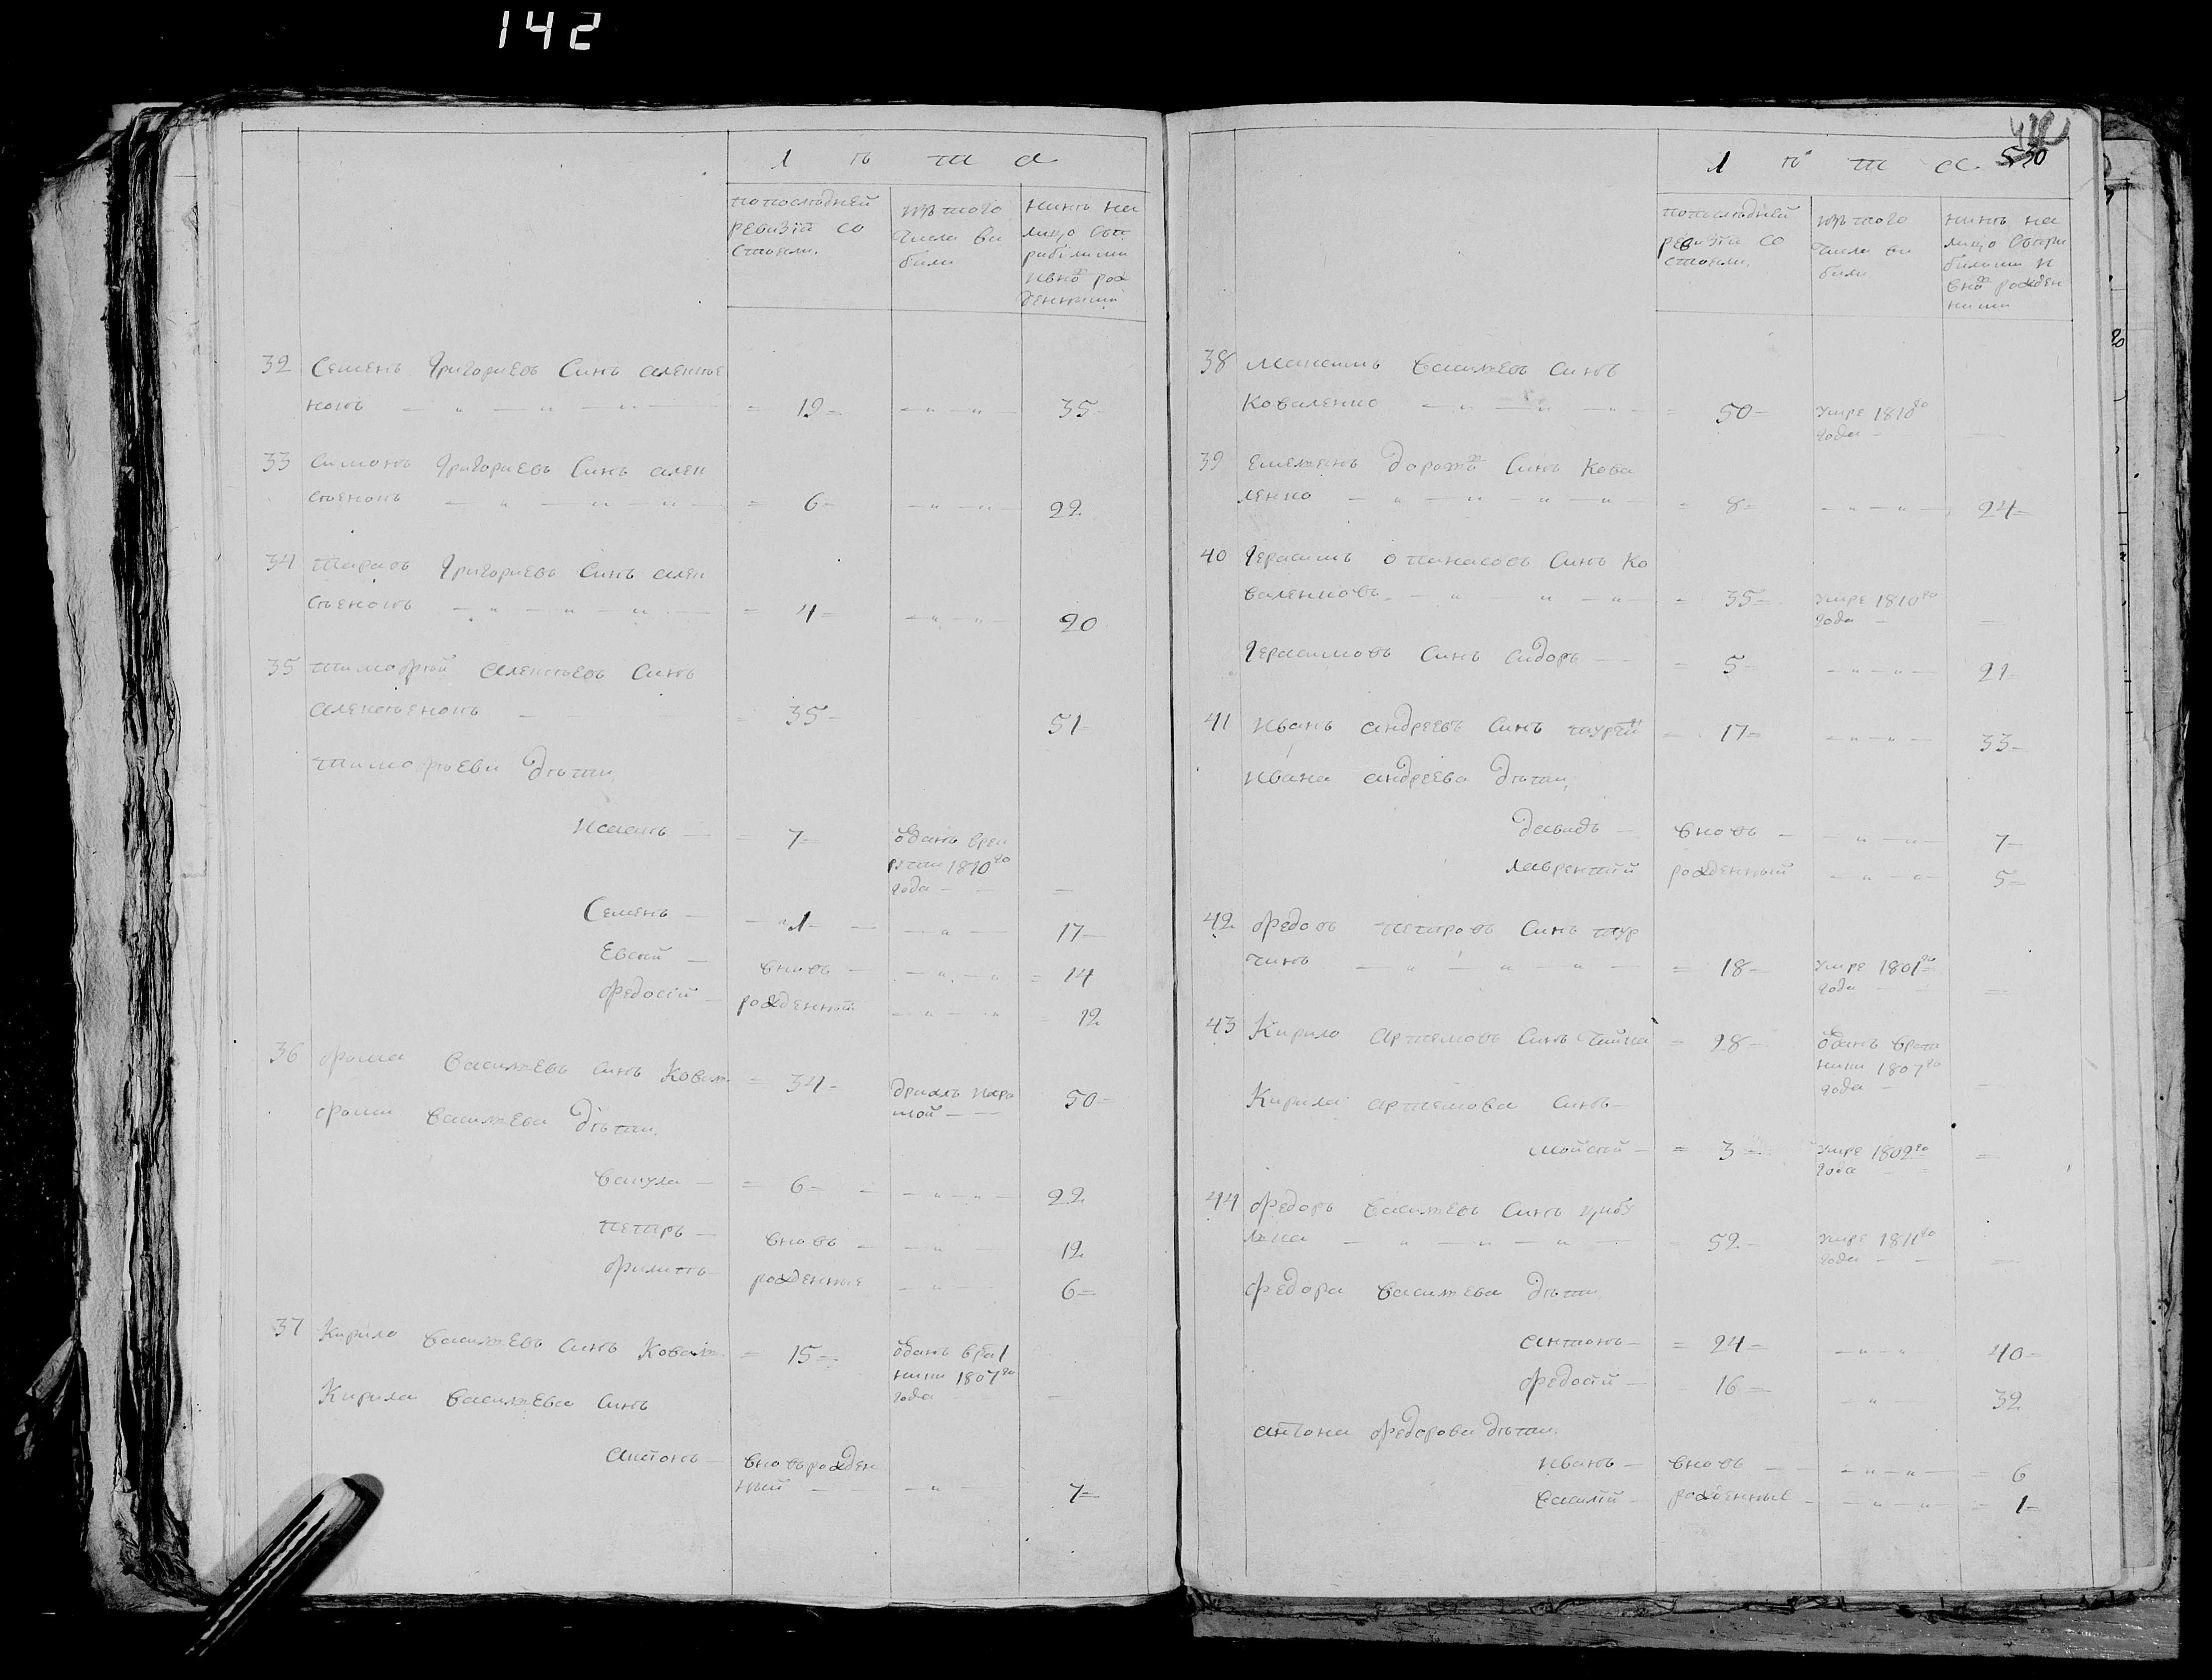 142
л ѣ т а
попослѣдней
ревизіи со
стояли.
изъ того
числа ви
били
нинѣ на
лицо съп
рибилими
ивно рож
денними
32 Семенъ Григориевъ Синъ алексѣе
нокъ
= 19 =
35
33 Симонъ Григориевъ Синъ алек
сѣенокъ
= 6 =
22
34 Тарасъ Григориевъ Синъ алек
сѣенокъ
= 4 =
20
35 Тимофѣй алексѣевъ Синъ
алексѣенокъ
= 35 =
51
Тимофѣеви Дѣти,
Исаакъ
= 7 =
ѿданъ врек
рети 1810го
года
Семенъ
1
17
Евсѣй
вновь
= 14
Федосій
рожденній
12
36 Фома Василѣевъ Синъ Ковал.
= 34 =
50 =
Фоми Василѣева Дѣти,
Вакула
= 6
22
Петаръ
вновь
12
Филипъ
рожденние
6 =
37 Кирило Василѣевъ Синъ Ковал.
= 15 =
1807го
года
Кирила Василѣева Синъ
Антонъ
вновърожден
ній
7 =
530
л ѣ т а
попослѣдней
ревизіи со
стояли.
изъ того
числа ви
били
нинѣ на
лицо сьпри
билими и
вно рожден
ними
38 Максимъ Василѣевъ Синъ
Коваленко
= 50 =
умре 1810го
года
39 Емелянъ Дорофѣ Синъ Кова
ленко
= 8 =
24 =
40 Герасимъ опанасовъ Синъ Ко
валенковъ
= 35 =
умре 1810го
года
Герасимовъ Синъ Сидоръ
= 5 =
21
41 Иванъ андреевъ Синъ турчи
17 =
33
Ивана андреева Дѣти,
Давидъ
вновь
7
Лаврентій
рожденный
5 =
42 Федоръ Петровъ Синъ тур
чинъ
= 18
умре 1801го
года
43 Кирило артемовъ Синъ Чайка
= 28
1807го
года
Кирила артемова Синъ
Мойсѣй
= 3
умре 1802го
года
44 Федоръ Василѣевъ Синъ цибу
лька
52
умре 1811го
года
Федора Василѣева Дѣти,
антонъ
= 24 =
40 =
Федосій
16 =
32
антона Федорова Дѣти,
Иванъ
вновь
= 6
Василій
рожденные
= 1